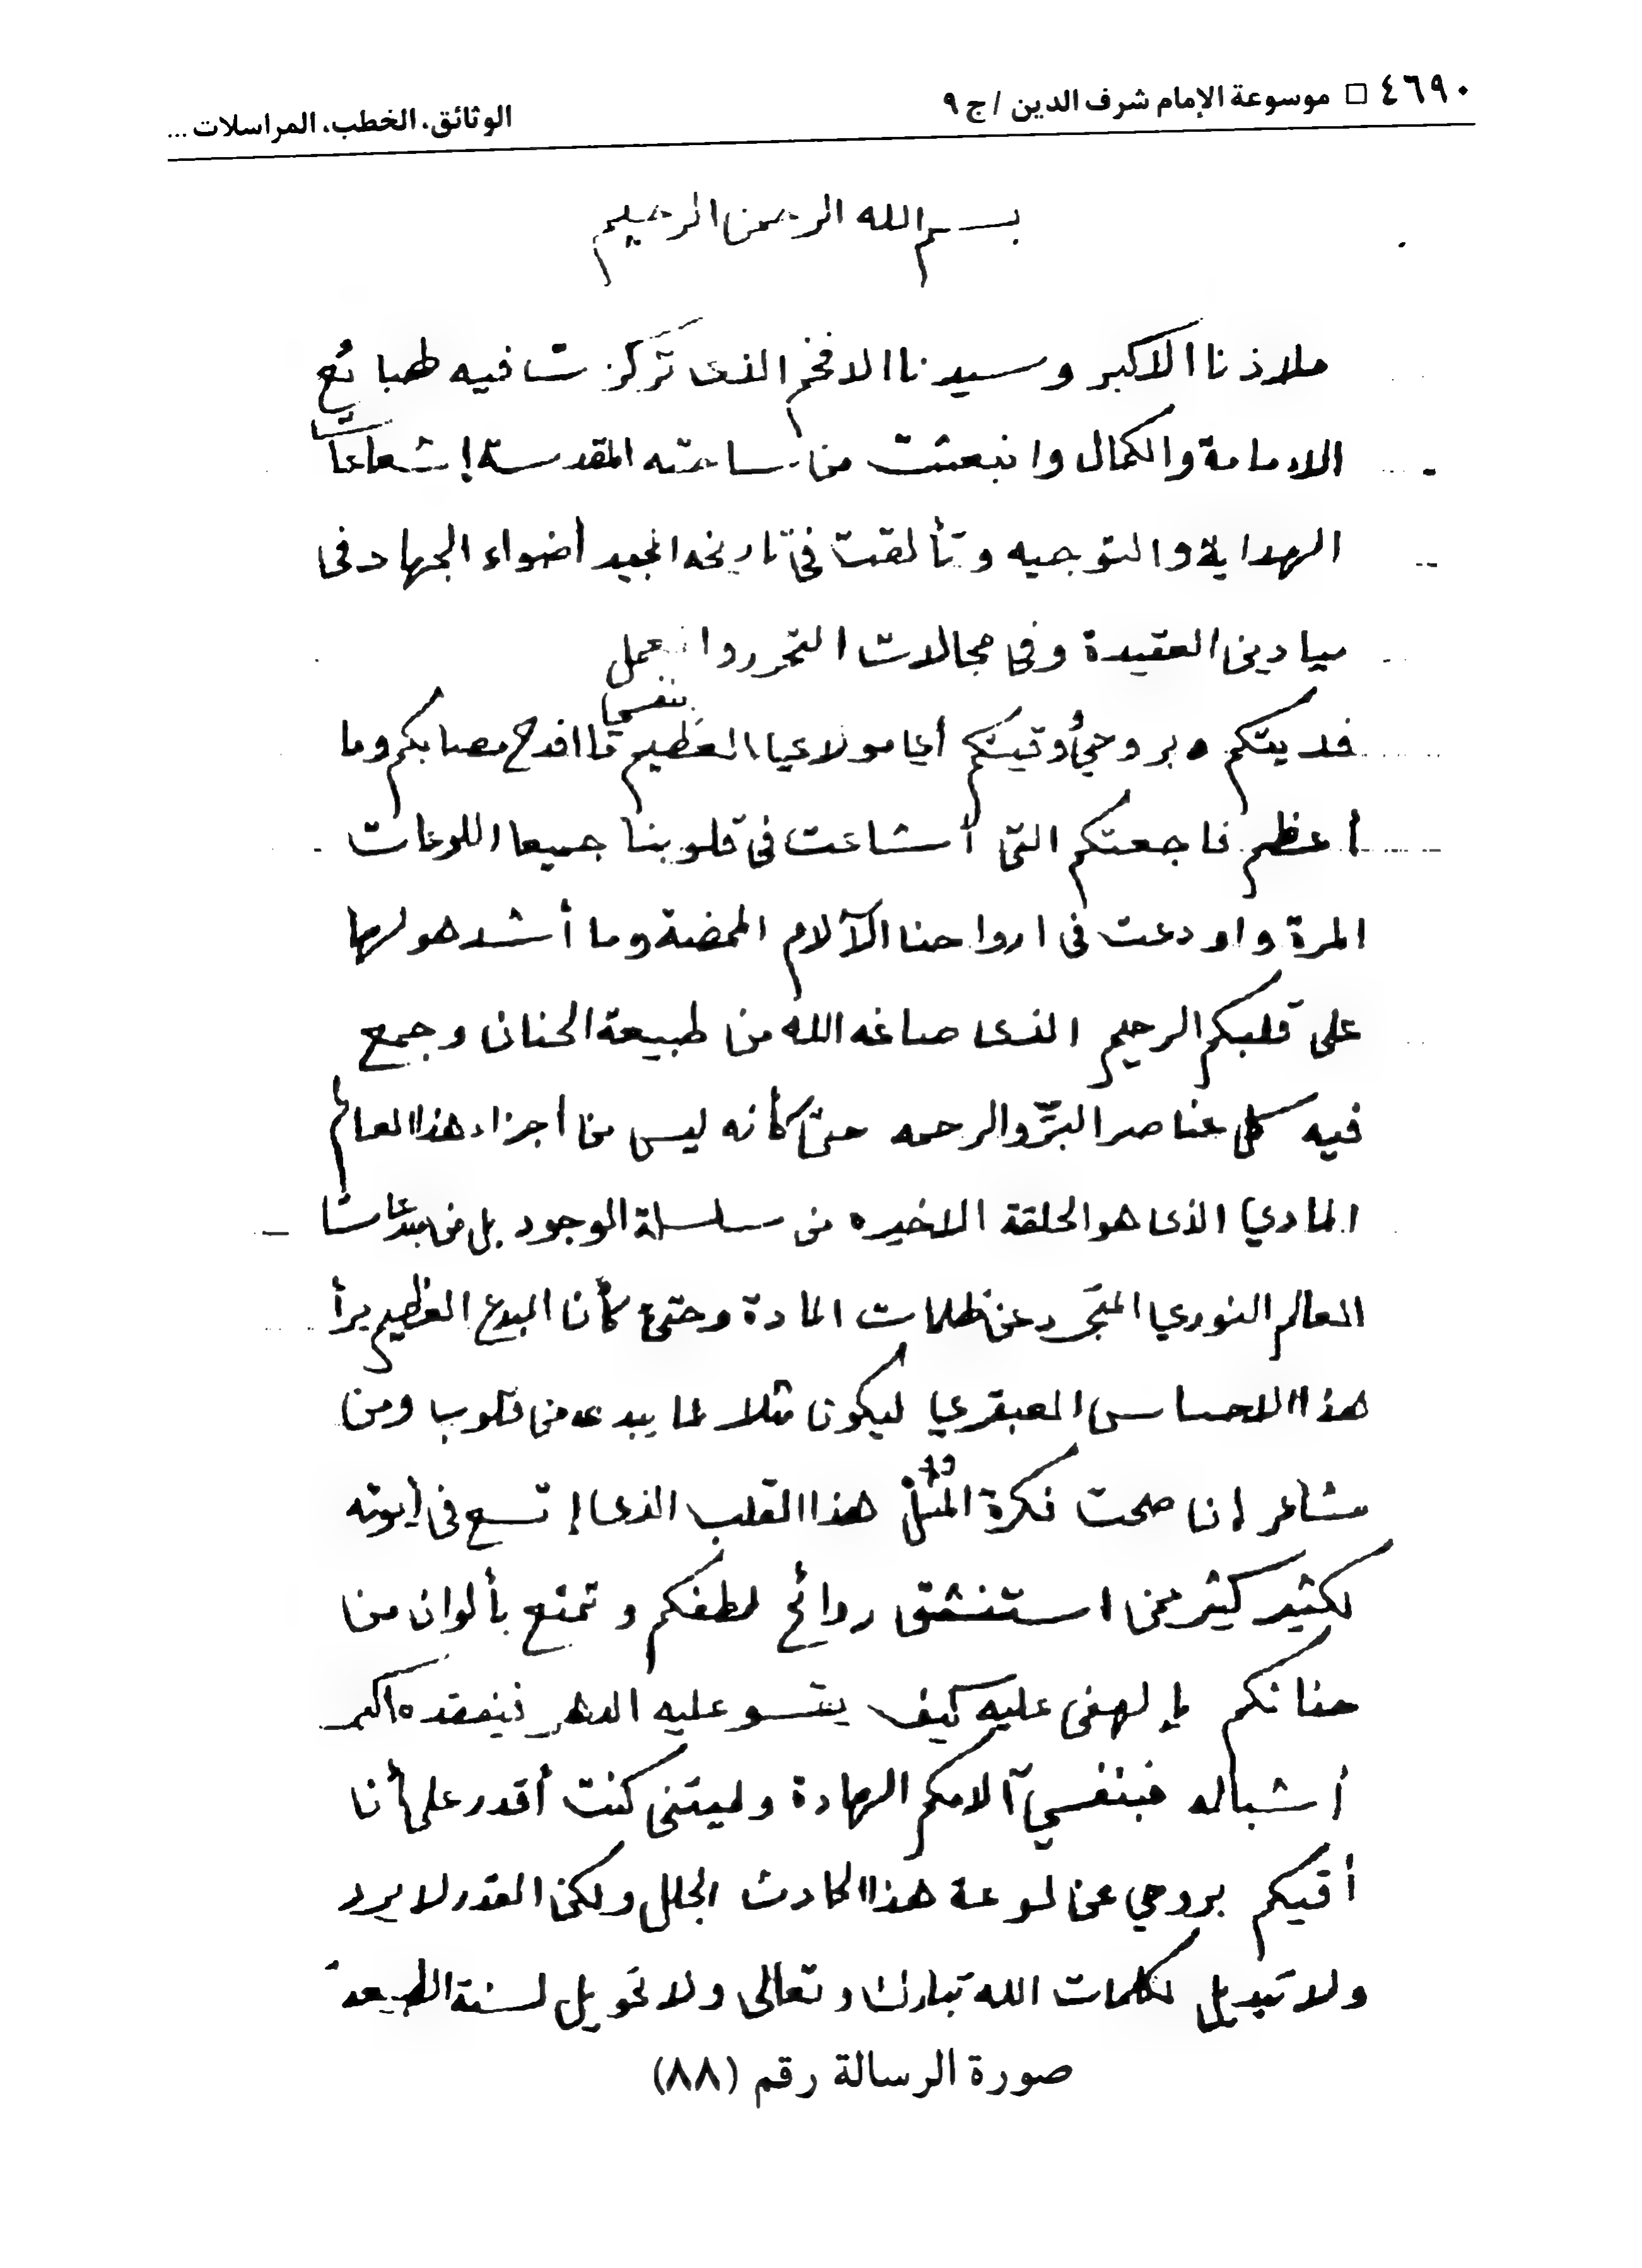 ٤٦٩٠ □ موسوعة الإمام شرف الدين / ج ٩ الوثائق، الخطب، المراسلات ...
بسم الله الرحمن الرحيم
ملاذنا الاكبر وسيدنا الافخم الذى تَركزت فيه طبائع
الامامة والكمال وانبعثت من ساحته المقدسة إشعاعات
الهداية والتوجيه وتألقت في تاريخه المجيد أضواء الجهاد فى
ميادين العقيدة وفي مجالات التحرر والعمل
فديتكم وبروحي أُوقيتكم أيا مولاي العظيم بنفسي ما افدح مصابكم وما
أعظم فاجعتكم التى أشاعت فى قلوبنا جميعا اللوعات
المرة واودعت فى ارواحنا الآلام الممضة وما أشد هولها
على قلبكم الرحيم الذى صاغه الله من طبيعة الحنان وجمع
فيه كل عناصر البرّ والرحمه حتى كأنه ليس من أجزاء هذا العالم
المادي الذى هو الحلقة الاخيره من سلسلة الوجود بل من مبتدعات
العالم النوري المتجَرد عن ظلمات المادة وحتى كأن المبدع العظيم برأ
هذا الاحساس العبقري ليكون مثلا لما يبدعه من قلوب ومن
مشاعر إن صحت فكرة المُثل هذا القلب الذى إتسع فى أبوته
لكثير كثير ممن استنشق روائح لطفكم وتمتع بألوان من
حنانكم يا لهفى عليه كيف يقسو عليه الدهر فيفقده اكبر
أشباله فبنفسي آلامكم الهادة وليتنى كنت أقدر على أن
أقيكم بروحي عن لوعة هذا الحادث الجلل ولكن القدر لا يرد
ولا تبديل لكلمات الله تبارك وتعالى ولا تحويل لسنة الطبيعة
صورة الرسالة رقم (٨٨)